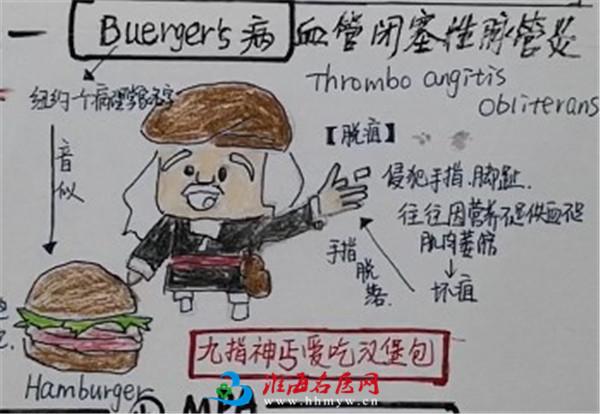 一 Buerger's 病 血管闭塞性脉管炎
Thrombo angitis
Obliterans
纽约一个病理学家名字
音似
【脱疽】
侵犯手指.脚趾.
往往因营养不足供血不足
肌肉萎缩
坏疽
手指脱落
九指神丐爱吃汉堡包
Hamburger
淮海名医网
www.hhmyw.cn